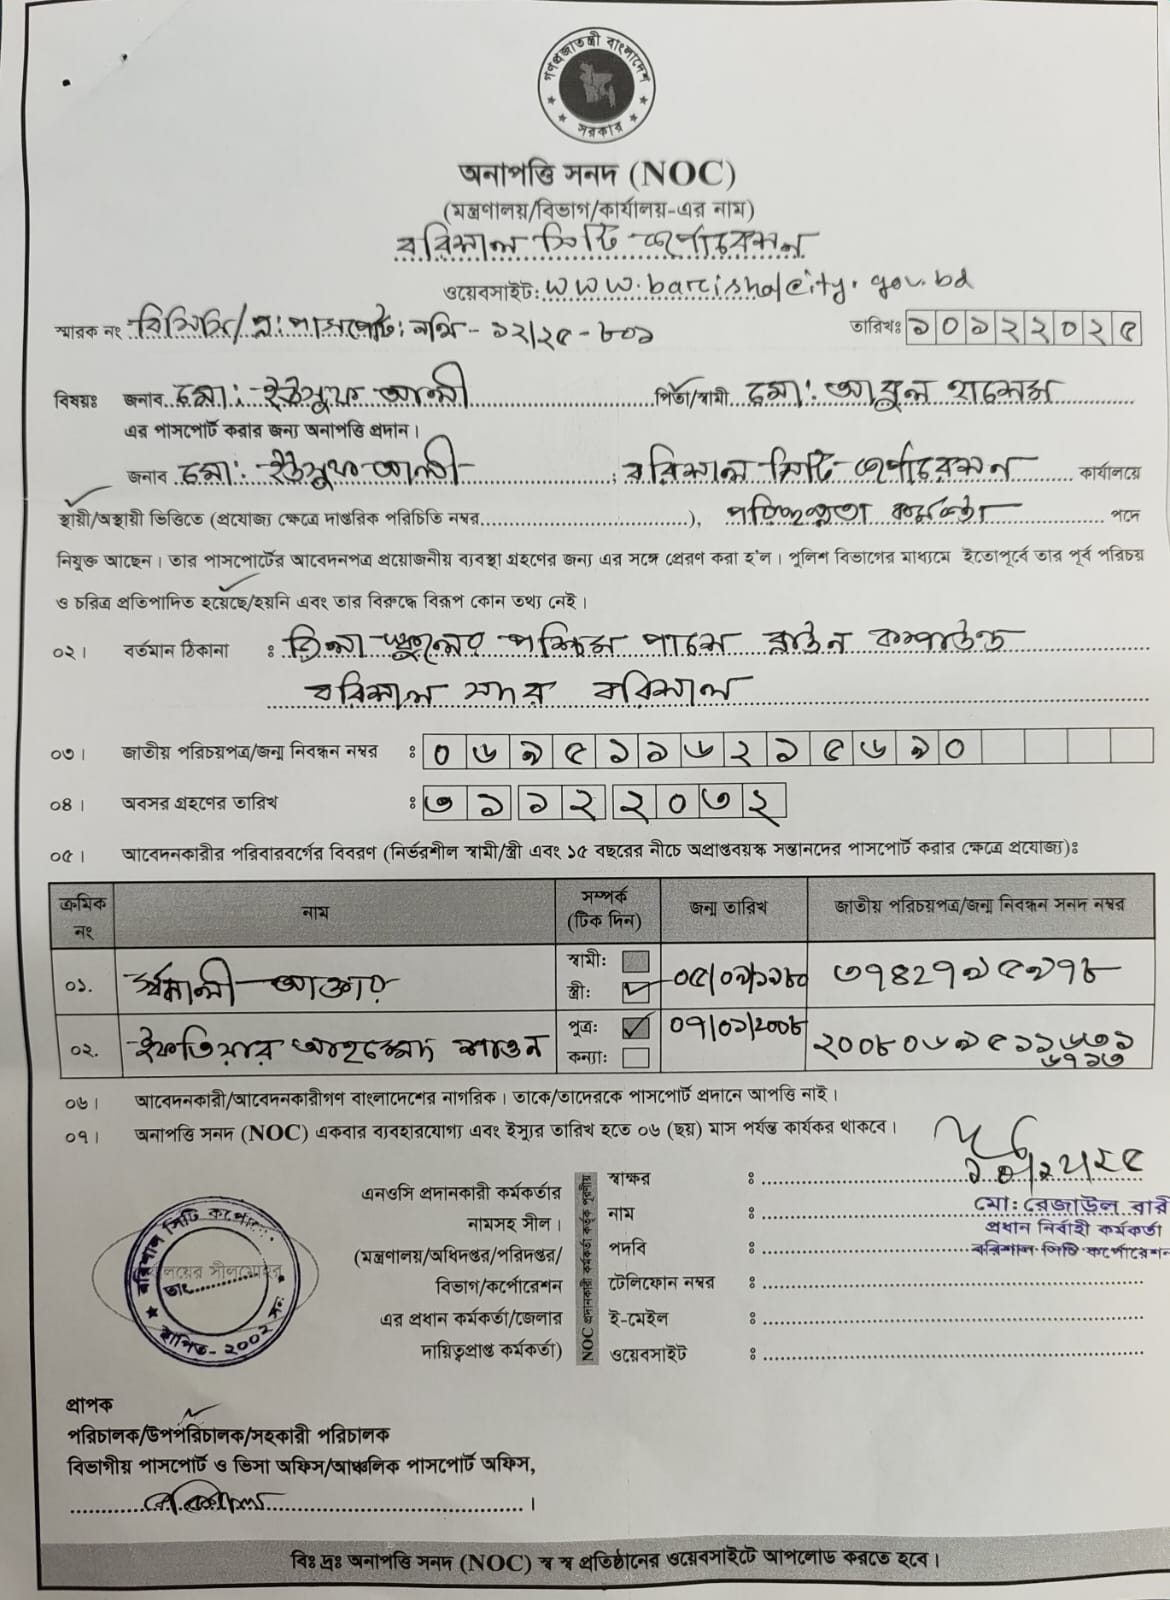 গণপ্রজাতন্ত্রী বাংলাদেশ
সরকার
অনাপত্তি সনদ (NOC)
(মন্ত্রণালয়/বিভাগ/কার্যালয়-এর নাম)
বরিশাল সিটি কর্পোরেশন
ওয়েবসাইট: www.barcishalcity.gov.bd
স্মারক নং বিসিসি/প্র: পাসপোর্ট: নথি - ১২/২৫ - ৮০১ তারিখঃ ১০১২২০২৫
বিষয়ঃ জনাব মো: ইউসুফ আলী পিতা/স্বামী মো: আবুল হাসেম
এর পাসপোর্ট করার জন্য অনাপত্তি প্রদান।
জনাব মো: ইউসুফ আলী ; বরিশাল সিটি কর্পোরেশন কার্যালয়ে
স্থায়ী/অস্থায়ী ভিত্তিতে (প্রযোজ্য ক্ষেত্রে দাপ্তরিক পরিচিতি নম্বর....................), পরিচ্ছন্নতা কর্মকর্তা পদে
নিযুক্ত আছেন। তার পাসপোর্টের আবেদনপত্র প্রয়োজনীয় ব্যবস্থা গ্রহণের জন্য এর সঙ্গে প্রেরণ করা হ'ল। পুলিশ বিভাগের মাধ্যমে ইতোপূর্বে তার পূর্ব পরিচয়
ও চরিত্র প্রতিপাদিত হয়েছে/হয়নি এবং তার বিরুদ্ধে বিরূপ কোন তথ্য নেই।
০২। বর্তমান ঠিকানা : জিলা স্কুলের পশ্চিম পাশে ব্রাউন কম্পাউন্ড
বরিশাল সদর বরিশাল
০৩। জাতীয় পরিচয়পত্র/জন্ম নিবন্ধন নম্বর : ০৬৯৫১১৬২১৫৬৯০
০৪। অবসর গ্রহণের তারিখ : ৩১১২২০৩২
০৫। আবেদনকারীর পরিবারবর্গের বিবরণ (নির্ভরশীল স্বামী/স্ত্রী এবং ১৫ বছরের নীচে অপ্রাপ্তবয়স্ক সন্তানদের পাসপোর্ট করার ক্ষেত্রে প্রযোজ্য)ঃ
ক্রমিক নং নাম সম্পর্ক (টিক দিন) জন্ম তারিখ জাতীয় পরিচয়পত্র/জন্ম নিবন্ধন সনদ নম্বর
০১. আক্তার স্বামী: স্ত্রী: ৩৭৪২৭৯৫৯৭৮
০২. ইফতিয়ার আহম্মেদ শাওন পুত্র: কন্যা: ০৭/০১/২০০৮ ২০০৮০৬৯৫১১৬৩১
৬৭১৩
০৬। আবেদনকারী/আবেদনকারীগণ বাংলাদেশের নাগরিক। তাকে/তাদেরকে পাসপোর্ট প্রদানে আপত্তি নাই।
০৭। অনাপত্তি সনদ (NOC) একবার ব্যবহারযোগ্য এবং ইস্যুর তারিখ হতে ০৬ (ছয়) মাস পর্যন্ত কার্যকর থাকবে।
এনওসি প্রদানকারী কর্মকর্তার
নামসহ সীল।
(মন্ত্রণালয়/অধিদপ্তর/পরিদপ্তর/
বিভাগ/কর্পোরেশন
এর প্রধান কর্মকর্তা/জেলার
দায়িত্বপ্রাপ্ত কর্মকর্তা)
NOC প্রদানকারী কর্মকর্তা কর্তৃক পূরণীয়
স্বাক্ষর :
নাম : মো: রেজাউল বারী
প্রধান নির্বাহী কর্মকর্তা
পদবি : বরিশাল সিটি কর্পোরেশন
টেলিফোন নম্বর :
ই-মেইল :
ওয়েবসাইট :
বরিশাল সিটি কর্পোরেশন
তাং
স্থাপিত - ২০০২ সন
প্রাপক
পরিচালক/উপপরিচালক/সহকারী পরিচালক
বিভাগীয় পাসপোর্ট ও ভিসা অফিস/আঞ্চলিক পাসপোর্ট অফিস,
বরিশাল।
বিঃ দ্রঃ অনাপত্তি সনদ (NOC) স্ব স্ব প্রতিষ্ঠানের ওয়েবসাইটে আপলোড করতে হবে।